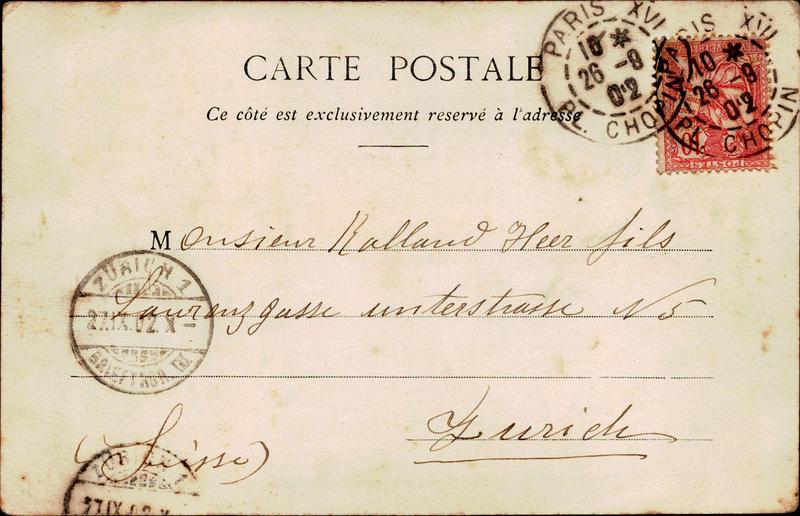 CARTE POSTALE
Ce côté est exclusivement reservé à l'adresse
PARIS XVI
10 *
26 -9
02
PL. CHOPIN
PARIS XVI
10 *
26 -9
02
PL. CHOPIN
POSTES
Monsieur Kalland Heer fils
unterstrasse N 5
Zurich
(Suisse)
ZÜRICH 1
27.IX.02.X-
BRIEFTRÄG.
ZÜRICH 1
27.IX.02.X